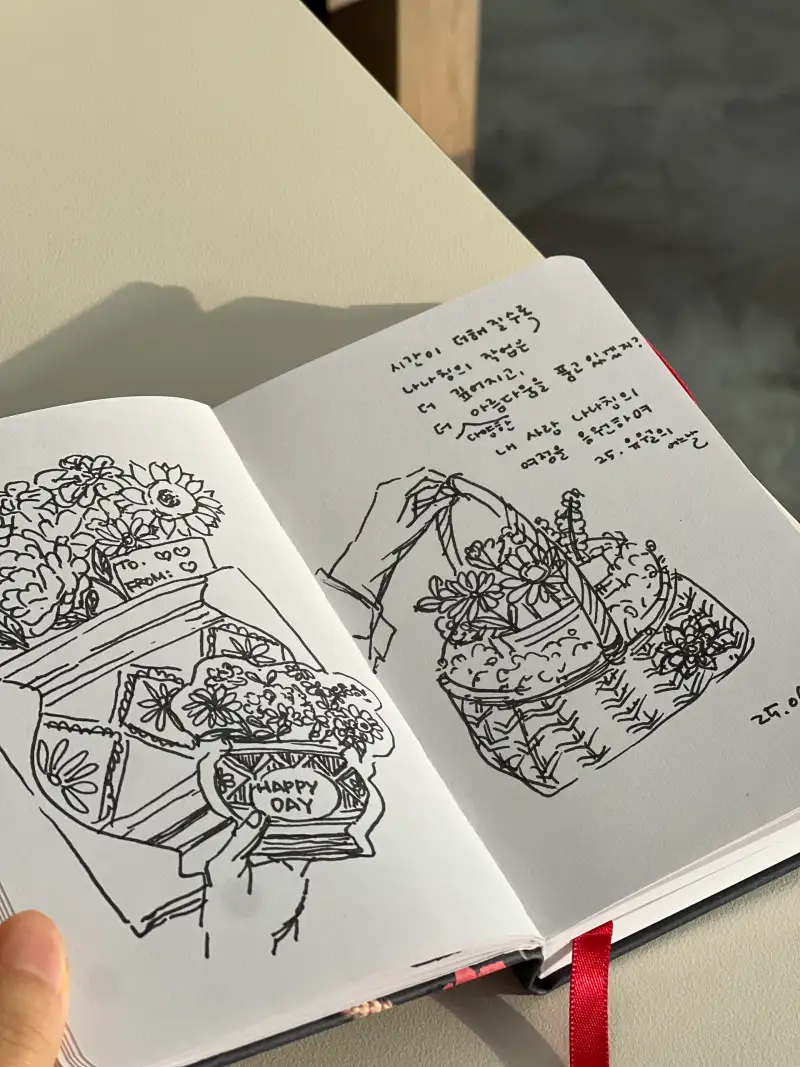 TO. ♡♡
FROM: ♡
HAPPY
DAY
시간이 더해질수록
나나침의 작업은
더 깊어지고,
더 다양한 아름다움을 품고 있겠지?
내 사랑 나나침의
여정을 응원하며
25. 유월의 어느날
25.0